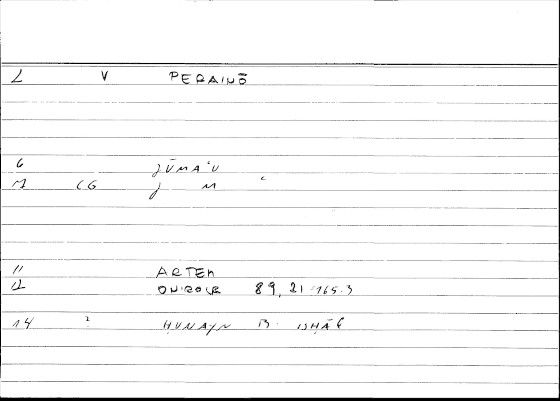 L V PERAINŌ
6 JŪMA'U
M CG J M
11 ARTEM
12 ONIROCR 89, 21-165.3
14 ? ḤUNAYN B. ISḤĀQ